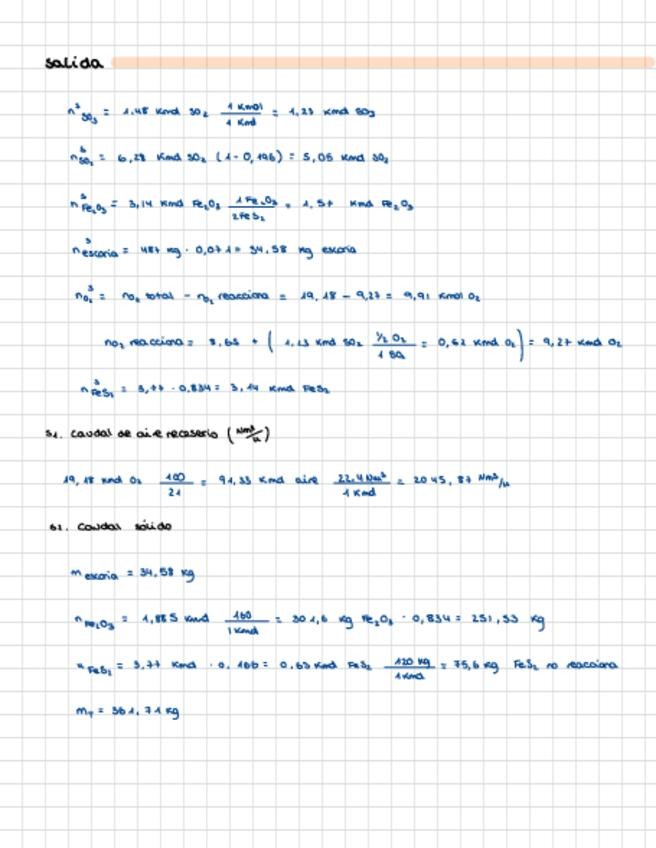 salida
n³SO₃ = 1,48 Kmol SO₂ 1 Kmol / 1 Kmol = 1,23 Kmol SO₃
n³SO₂ = 6,28 Kmol SO₂ (1-0,196) = 5,05 Kmol SO₂
n³Fe₂O₃ = 3,14 Kmol Fe₂O₃ 1 Fe₂O₃ / 2 FeS₂ = 1,57 Kmol Fe₂O₃
n³escoria = 487 kg · 0,071 = 34,58 kg escoria
n³O₂ = nO₂ total - nO₂ reacciona = 19,18 - 9,27 = 9,91 Kmol O₂
nO₂ reacciona = 8,65 + ( 1,23 Kmol SO₂ ½ O₂ / 1 SO₂ = 0,62 Kmol O₂ ) = 9,27 Kmol O₂
n³FeS₂ = 3,77 · 0,834 = 3,14 Kmol FeS₂
51. Caudal de aire necesario (Nm³/h)
19,18 Kmol O₂ 100 / 21 = 91,33 Kmol aire 22,4 Nm³ / 1 Kmol = 2045,87 Nm³/h
62. Caudal sólido
m escoria = 34,58 kg
n Fe₂O₃ = 1,885 Kmol 160 / 1 Kmol = 301,6 kg Fe₂O₃ · 0,834 = 251,53 kg
n FeS₂ = 3,77 Kmol · 0,166 = 0,63 Kmol FeS₂ 120 kg / 1 Kmol = 75,6 kg FeS₂ no reacciona
mT = 361,71 kg